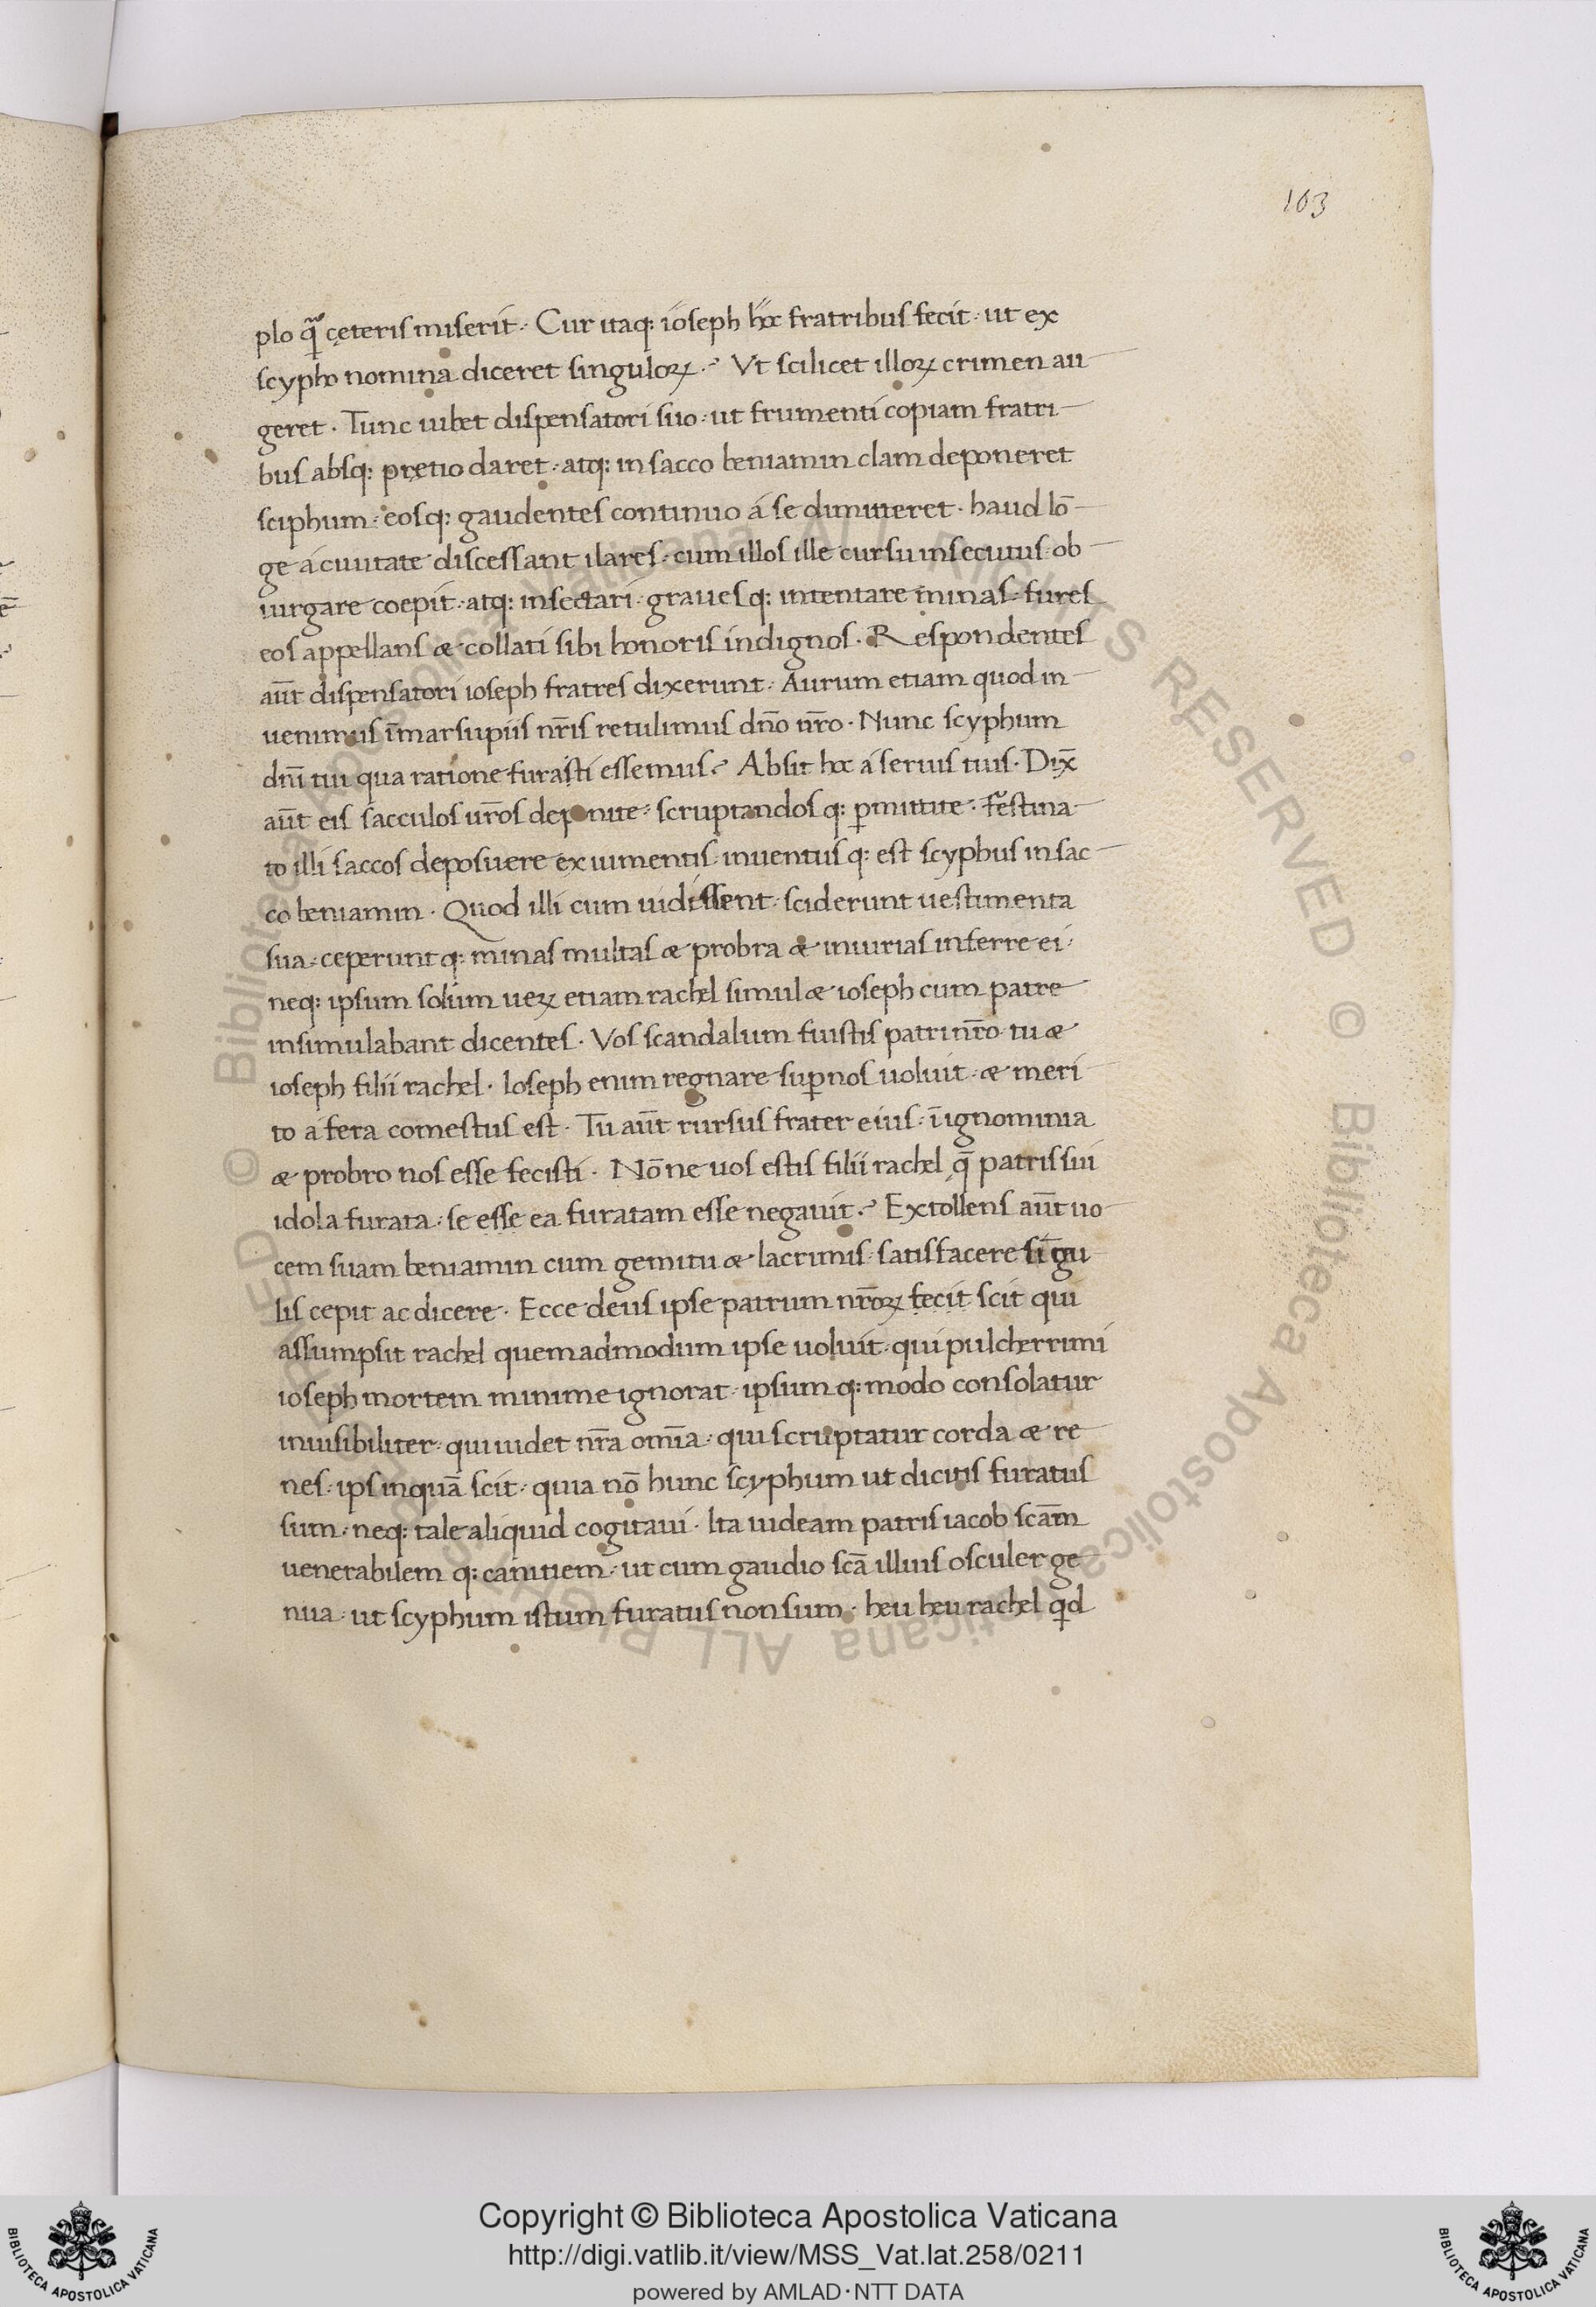 163
plo q̃ ceteris miserit. Cur itaq: ioseph hoc fratribus fecit. ut ex
scypho nomina diceret singuloꝝ.? Vt scilicet illoꝝ crimen au
geret. Tunc iubet dispensatori suo. ut frumenti copiam fratri
bus absq: pretio daret. atq: in sacco beniamin clam deponeret
sciphum. eosq: gaudentes continuo á se dimitteret. haud lō
ge á ciuitate discessant ilares. cum illos ille cursu insecutus ob
iurgare coepit. atq: insectari. grauesq: intentare minas. fures
eos appellans & collati sibi honoris indignos. Respondentes
aūt dispensatori ioseph fratres dixerunt. Aurum etiam quod in
uenimus ī marsupiis nr̄is retulimus dn̄o nr̄o. Nunc scyphum
dn̄i tui qua ratione furasti essemus? Absit hoc á seruis tuis. Dix̄
aūt eis sacculos ur̄os deponite. scruptandosq: ꝑmittite. festina
to illi saccos deposuere ex iumentis. inuentusq: est scyphus in sac
co beniamin. Quod illi cum uidissent. sciderunt uestimenta
sua. ceperuntq: minas multas & probra & iniurias inferre ei.
neq: ipsum solum ueꝝ etiam rachel simul & ioseph cum patre
insimulabant dicentes. Vos scandalum fuistis patri nr̄o. tu &
ioseph filii rachel. Ioseph enim regnare suꝑ nos uoluit. & meri
to á fera comestus est. Tu aūt rursus frater eius. ī ignominia
& probro nos esse fecisti. Nōne uos estis filii rachel q̄ patris sui
idola furata. se esse ea furatam esse negauit.? Extollens aūt uo
cem suam beniamin cum gemitu & lacrimis. satisfacere sīgu
lis cepit ac dicere. Ecce deus ipse patrum nr̄oꝝ fecit scit qui
assumpsit rachel quemadmodum ipse uoluit. qui pulcherrimi
ioseph mortem minime ignorat. ipsumq: modo consolatur
inuisibiliter. qui uidet nr̄a omīa. qui scruptatur corda & re
nes. ips inquā scit. quia nō hunc scyphum ut dicitis furatus
sum. neq: tale aliquid cogitaui. Ita uideam patris iacob scām
venerabilemq: canitiem. ut cum gaudio scā illius osculer ge
nua. ut scyphum istum furatus non sum. heu heu rachel qd
© Biblioteca Apostolica Vaticana ALL RIGHTS RESERVED
Copyright © Biblioteca Apostolica Vaticana
http://digi.vatlib.it/view/MSS_Vat.lat.258/0211
powered by AMLAD·NTT DATA
BIBLIOTECA APOSTOLICA VATICANA
BIBLIOTECA APOSTOLICA VATICANA